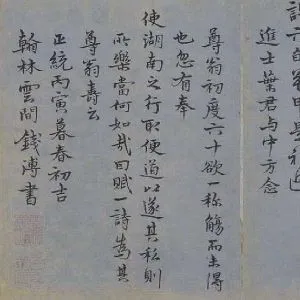 進士葉君与中方念
尊翁初度六十欲一稱觴而未得
也忽有奉
使湖南之行取便道以遂其私則
所樂當何如哉因賦一詩為其
尊翁壽云
正統丙寅暮春初吉
翰林雲間錢溥書